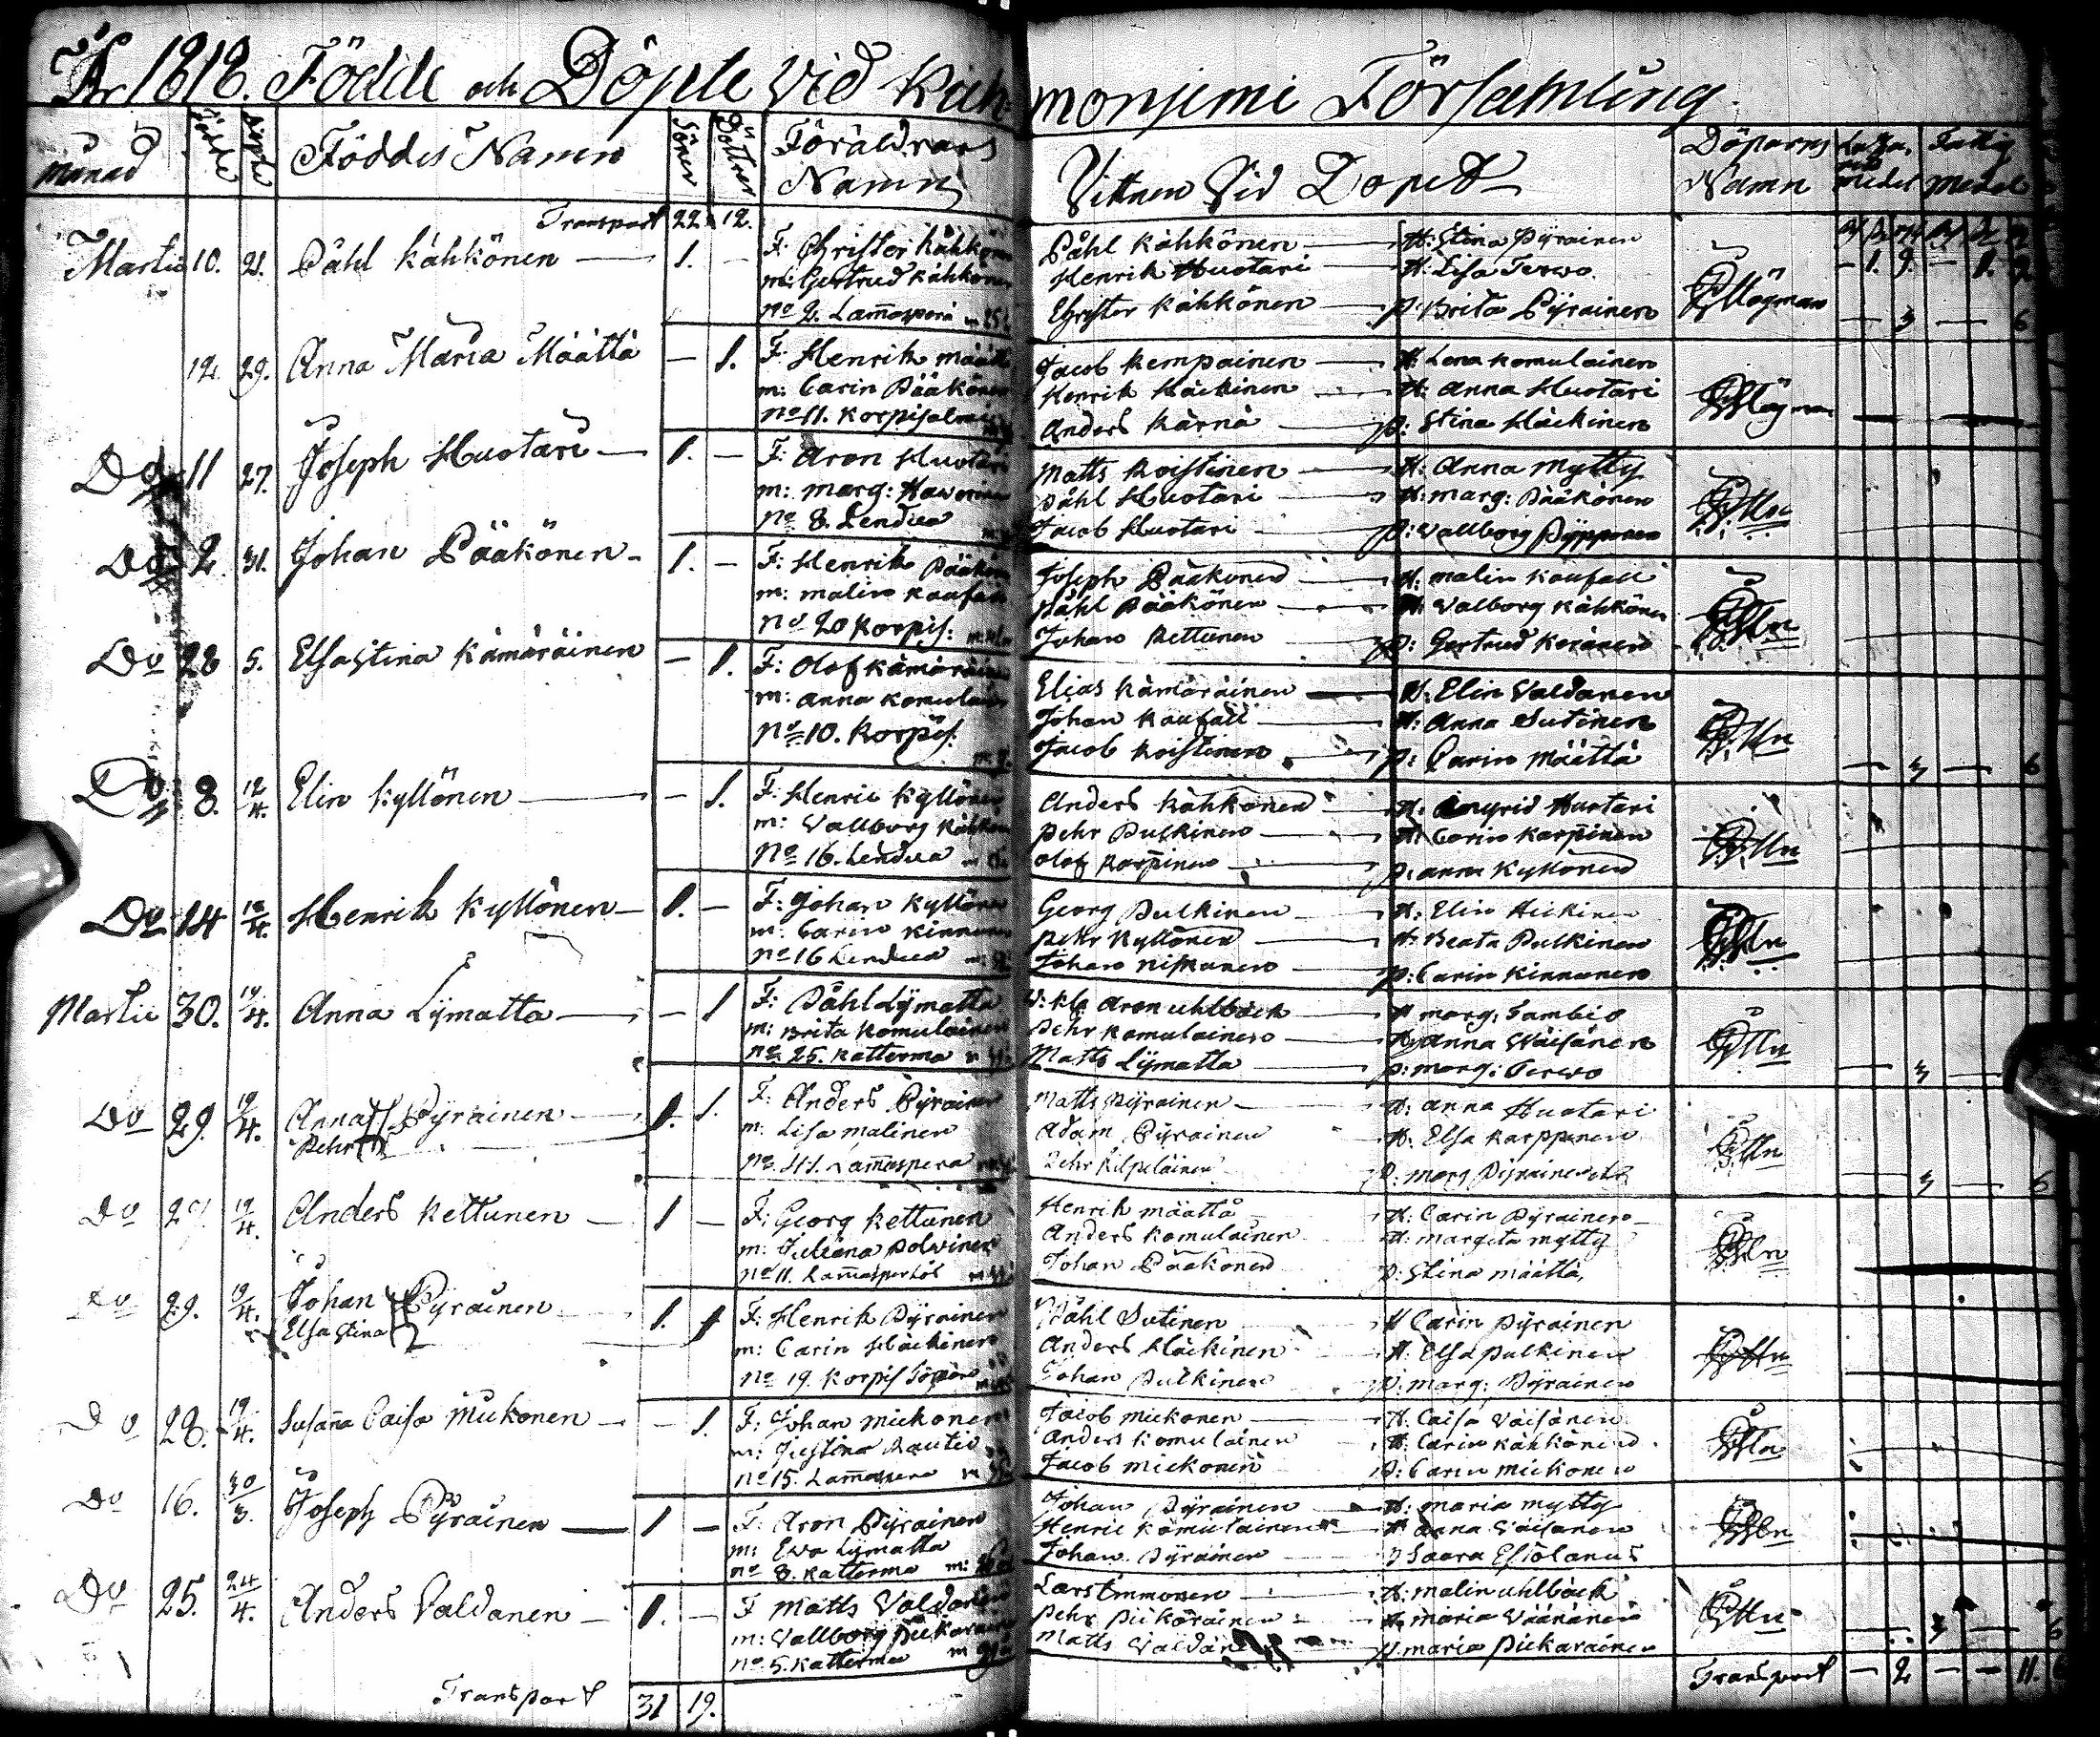 År 1818. Födde och Döpte Vid Kuhmonjemi Församling
månad Födde Döpte Föddes Namn Söner Döttrar Föräldrars Namn Vittnen Vid Dopet Döparns Namn Fattig medel
Transport 22 12.
Martii 10. 21. Påhl Kähkönen 1. —
F: Christer Kähkönen
m: Gertrud Kähkönen
No 2. Lam̄aspera
Påhl Kähkönen — H: Stina Pyrainen
Henrik Huotari — H: Lisa Terwo
Christer Kähkönen — p: Brita Pyrainen
12. 29. Anna Maria Määttä — 1.
F: Henrik Määttä
m: Carin Pääkönen
No 11. Korpisalmi
Jacob Kempainen — H: Lena Komulainen
Henrik Häickinen — H: Anna Huotari
Anders Kärnä — p: Stina Häickinen
Do 11 27. Joseph Huotari — 1. —
F: Aron Huotari
m: Marg: Hawerinen
No 8. Lendua
Matts Koistinen — H: Anna Mytty
Påhl Huotari — H: Marg: Pääkönen
Jacob Huotari — p: Wallborg Pypponen
Do 2. 31. Johan Pääkönen — 1. —
F: Henrik Pääkönen
m: Malin Kaufall
No 20 Korpis:
Joseph Pääkönen — H: Malin Kaufall
Påhl Pääkönen — H: Walborg Kähkönen
Johan Kettunen — p: Gertrud Keränen
Do 28 5. Elsa Stina Kämäräinen — 1.
F: Olof Kämäräinen
m: Anna Komulainen
No 10. Korpis.
Elias Kämäräinen — H: Elin Valdanen
Johan Kaufall — H: Anna Sutinen
Jacob Koistinen — p: Carin Määttä
Do 8. 12/4. Elin Kyllönen — 1.
F: Henric Kyllönen
m: Vallborg Kähkönen
No 16. Lendua
Anders Kähkönen — H: Ingrid Huotari
Pehr Pulkinen — H: Carin Karpinen
Olof Karpinen — p: Anna Kyllönen
Do 14 12/4. Henrik Kyllönen — 1. —
F: Johan Kyllönen
m: Carin Kinnunen
No 16 Lendua
Georg Pulkinen — H: Elin Heikinen
Pehr Kyllönen — H: Beata Pulkinen
Johan Niskanen — p: Carin Kinnunen
Martii 30. 14/4. Anna Lymatta — 1
F: Påhl Lymatta
m: Brita Komulainen
No 25. Katterma
Aron Uhlbäck — H Marg: Tambio
Pehr Komulainen — H: Anna Wäisänen
Matts Lymatta — p: Marg: Terwo
Do 29. 19/4. Anna Pyrainen 1. 1.
Pehr
F: Anders Pyrainen
m: Lisa Malinen
No 41. Lam̄aspera
Matts Pyrainen — H: Anna Huotari
Adam Pyrainen H: Elsa Karppinen
Pehr Kilpeläinen p: Marg Pyrainen
Do 27 19/4. Anders Kettunen — 1 —
F: Georg Kettunen
m: Juliana Polvinen
No 11.
Henrik Määttä H: Carin Pyrainen
Anders Komulainen H: Margeta Mytty
Johan Pääkönen p: Stina Määttä
Do 29. 19/4. Johan Pyrainen 1. 1
Elsa Stina
F: Henrik Pyrainen
m: Carin Häickinen
No 19. Korpis
Påhl Sutinen H Carin Pyrainen
Anders Häickinen H: Elsa Pulkinen
Johan Pulkinen p: Marg: Pyrainen
Do 28. 19/4. Susan̄a Caisa Mickonen — 1.
F: Johan Mickonen
m: Justina Rautio
No 15. Lam̄aspera
Jacob Mickonen — H: Caisa Väisänen
Anders Komulainen H: Carin Kähkönen
Jacob Mickonen p: Carin Mickonen
Do 16. 30/3. Joseph Pyrainen — 1 —
F: Aron Pyrainen
m: Eva Lymatta
No 8. Katterma
Johan Pyrainen — H: Maria Mytty
Henric Komulainen H Anna Väisänen
Johan Pyrainen p Saara Estolanus
Do 25. 24/4. Anders Valdanen — 1. —
F Matts Valdanen
m: Vallborg Pickarainen
No 5. Katterma
Lars Immonen H: Malin Uhlbäck
Pehr Pickarainen H: Maria Väänänen
Matts Valdanen p: Maria Pickarainen
Transport 31 19. Transport — 2 — — 11. 6